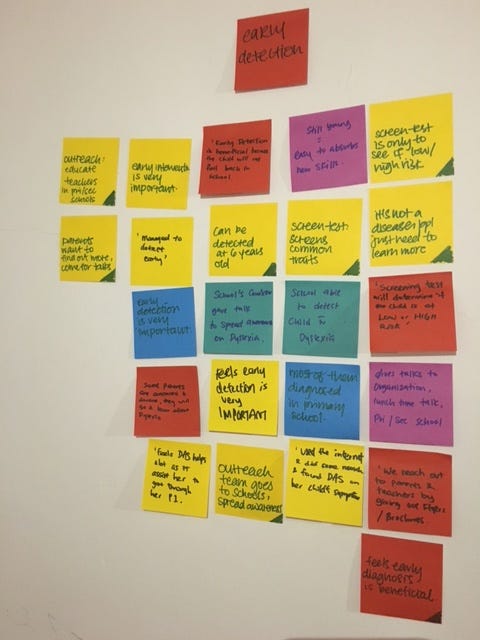 early
detection
outreach:
educate
teachers
in pri/sec
schools
early intervention
is very
important.
'Early Detection
is beneficial because
the child will not
fall back in
school
Still young
=
easy to absorbs
new skills.
screen-test
is only to
see if low/
high risk.
parents
want to
find out more,
come for talks
'Managed to
detect
early'
can be
detected
at 6 years
old
screen-test:
screens
common
traits
It's not a
disease, ppl
just need to
learn more
early
detection
is very
important.
School's
gave talk
to spread awareness
on Dyslexia.
School able
to detect
child
Dyslexia
'Screening test
will determine if
the child is at
LOW or HIGH
RISK'
Some parents
are concerned &
they will
to learn about
Dyslexia
feels early
detection is
very
IMPORTANT
most of them
diagnosed
in primary
school.
gives talks to
organization,
lunch time talk,
Pri / Sec school
'Feels DAS helps
alot as it
assist her to
get through
her P1.
outreach
team goes
to schools,
spread awareness
'used the internet
& did some research
& found DAS on
her child's symptoms
'We reach out
to parents &
teachers by
giving out flyers
/ Brochures.
feels early
diagnosis
is beneficial.